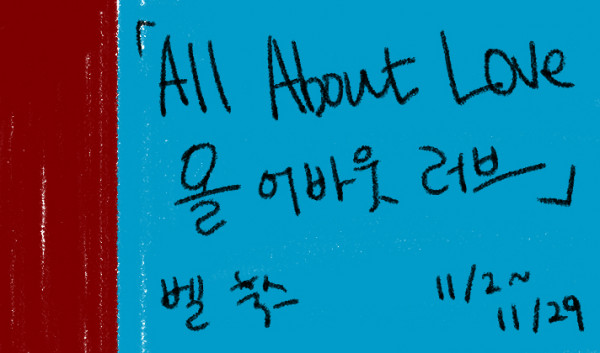 「All About Love
올 어바웃 러브」
벨 훅스
11/2~
11/29